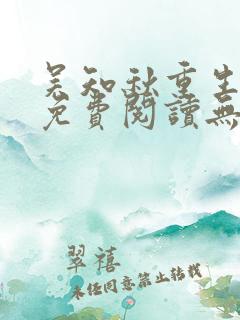 吴知秋重生
免費閱讀無
翠禧
未经同意禁止转载